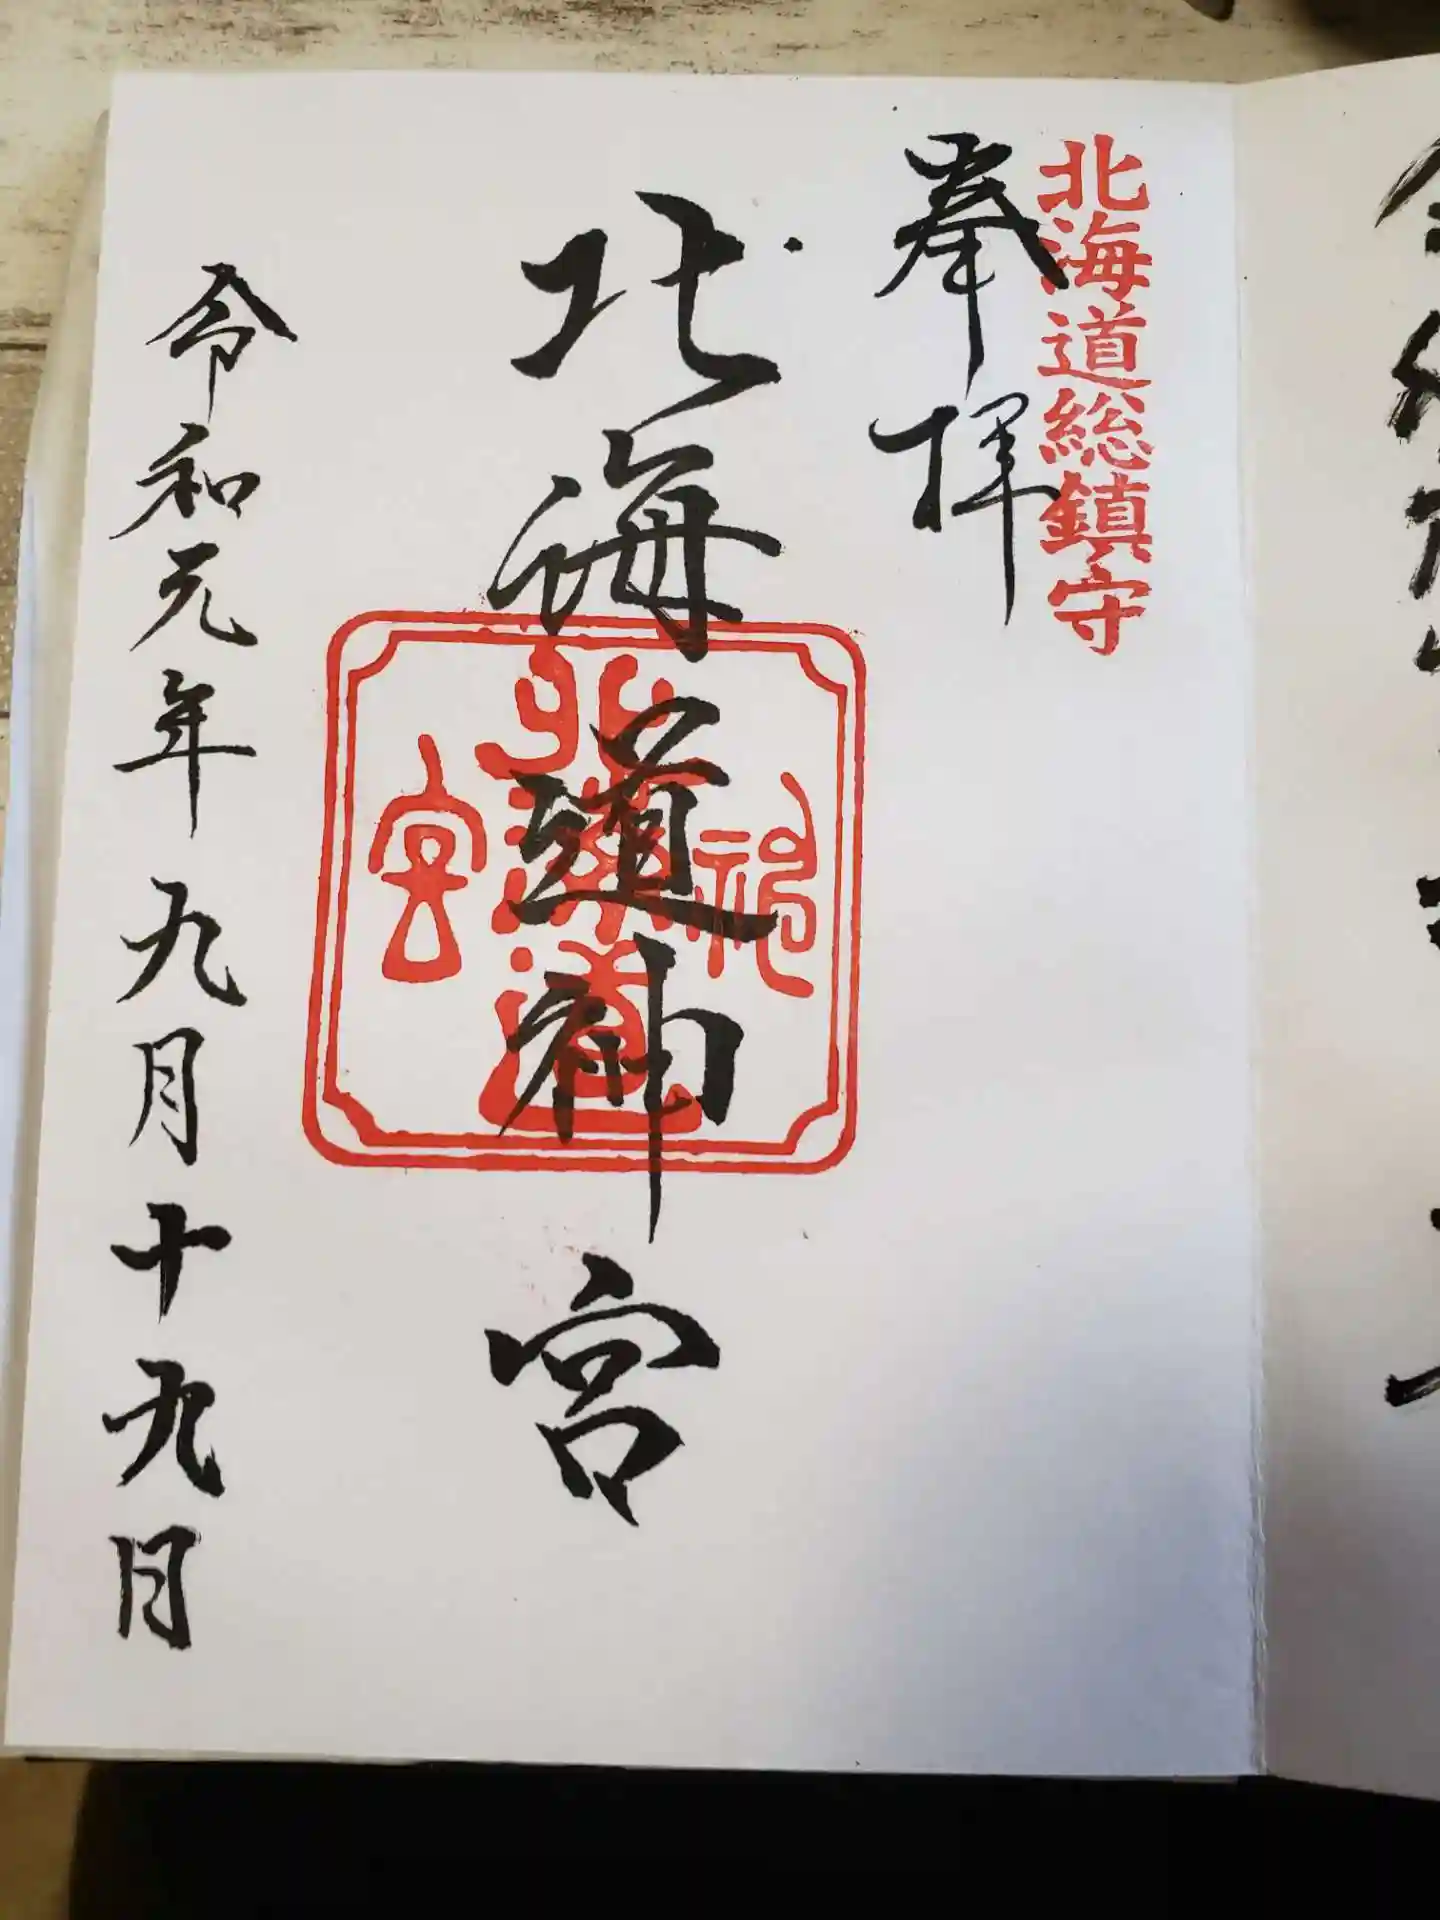 北海道総鎮守
奉拝
北海道神宮
北海道神宮
令和元年九月十九日